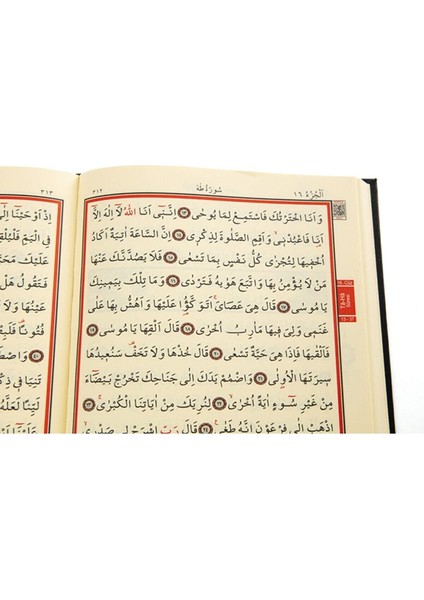 اَلْجُزْءُ ١٦
سُورَةُ طٰهٰ
٣١٢
وَاَنَا اخْتَرْتُكَ فَاسْتَمِعْ لِمَا يُوحٰى ﴿١٣﴾ اِنَّن۪ٓي اَنَا اللّٰهُ لَٓا اِلٰهَ اِلَّٓا
اَنَا فَاعْبُدْن۪ي وَاَقِمِ الصَّلٰوةَ لِذِكْر۪ي ﴿١٤﴾ اِنَّ السَّاعَةَ اٰتِيَةٌ اَكَادُ
اُخْف۪يهَا لِتُجْزٰى كُلُّ نَفْسٍ بِمَا تَسْعٰى ﴿١٥﴾ فَلَا يَصُدَّنَّكَ عَنْهَا
مَنْ لَا يُؤْمِنُ بِهَا وَاتَّبَعَ هَوٰيهُ فَتَرْدٰى ﴿١٦﴾ وَمَا تِلْكَ بِيَم۪ينِكَ
يَا مُوسٰى ﴿١٧﴾ قَالَ هِيَ عَصَايَ اَتَوَكَّؤُ۬ا عَلَيْهَا وَاَهُشُّ بِهَا عَلٰى
غَنَم۪ي وَلِيَ ف۪يهَا مَاٰرِبُ اُخْرٰى ﴿١٨﴾ قَالَ اَلْقِهَا يَا مُوسٰى ﴿١٩﴾
فَاَلْقٰيهَا فَاِذَا هِيَ حَيَّةٌ تَسْعٰى ﴿٢٠﴾ قَالَ خُذْهَا وَلَا تَخَفْ سَنُع۪يدُهَا
س۪يرَتَهَا الْاُو۫لٰى ﴿٢١﴾ وَاضْمُمْ يَدَكَ اِلٰى جَنَاحِكَ تَخْرُجْ بَيْضَٓاءَ
مِنْ غَيْرِ سُٓوءٍ اٰيَةً اُخْرٰى ﴿٢٢﴾ لِنُرِيَكَ مِنْ اٰيَاتِنَا الْكُبْرٰى ﴿٢٣﴾
اِذْهَبْ اِلٰى فِرْعَوْنَ اِنَّهُ طَغٰى ﴿٢٤﴾ قَالَ رَبِّ اشْرَحْ ل۪ي صَدْر۪ي
Tâ-Hâ
٣١٣
اِذْ اَوْحَيْنَٓا
فِي الْيَمِّ
عَلَيْكَ
فَتَقُولُ هَلْ
عَيْنُهَا وَلَا
فُتُونًا
﴿٤٠﴾ وَاصْطَ
تَنِيَا ف۪ي
لَيِّنًا لَعَلَّهُ
عَلَيْنَٓا